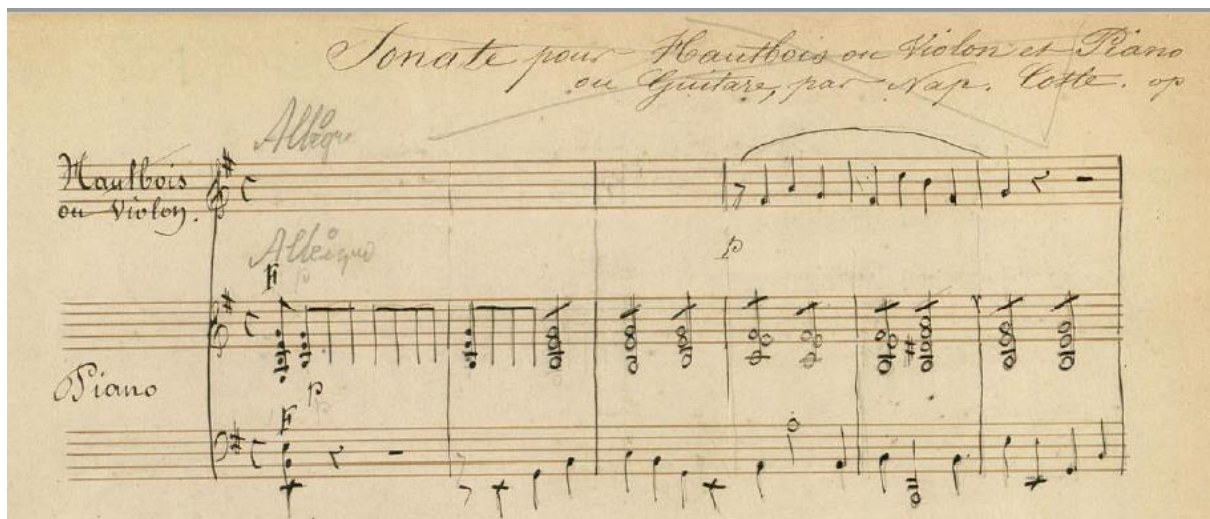 Sonate pour Hautbois ou Violon et Piano
ou Guitare, par Nap. Coste. op
Allegro
Hautbois
ou Violon.
p
Allegro
F
Piano
p
F